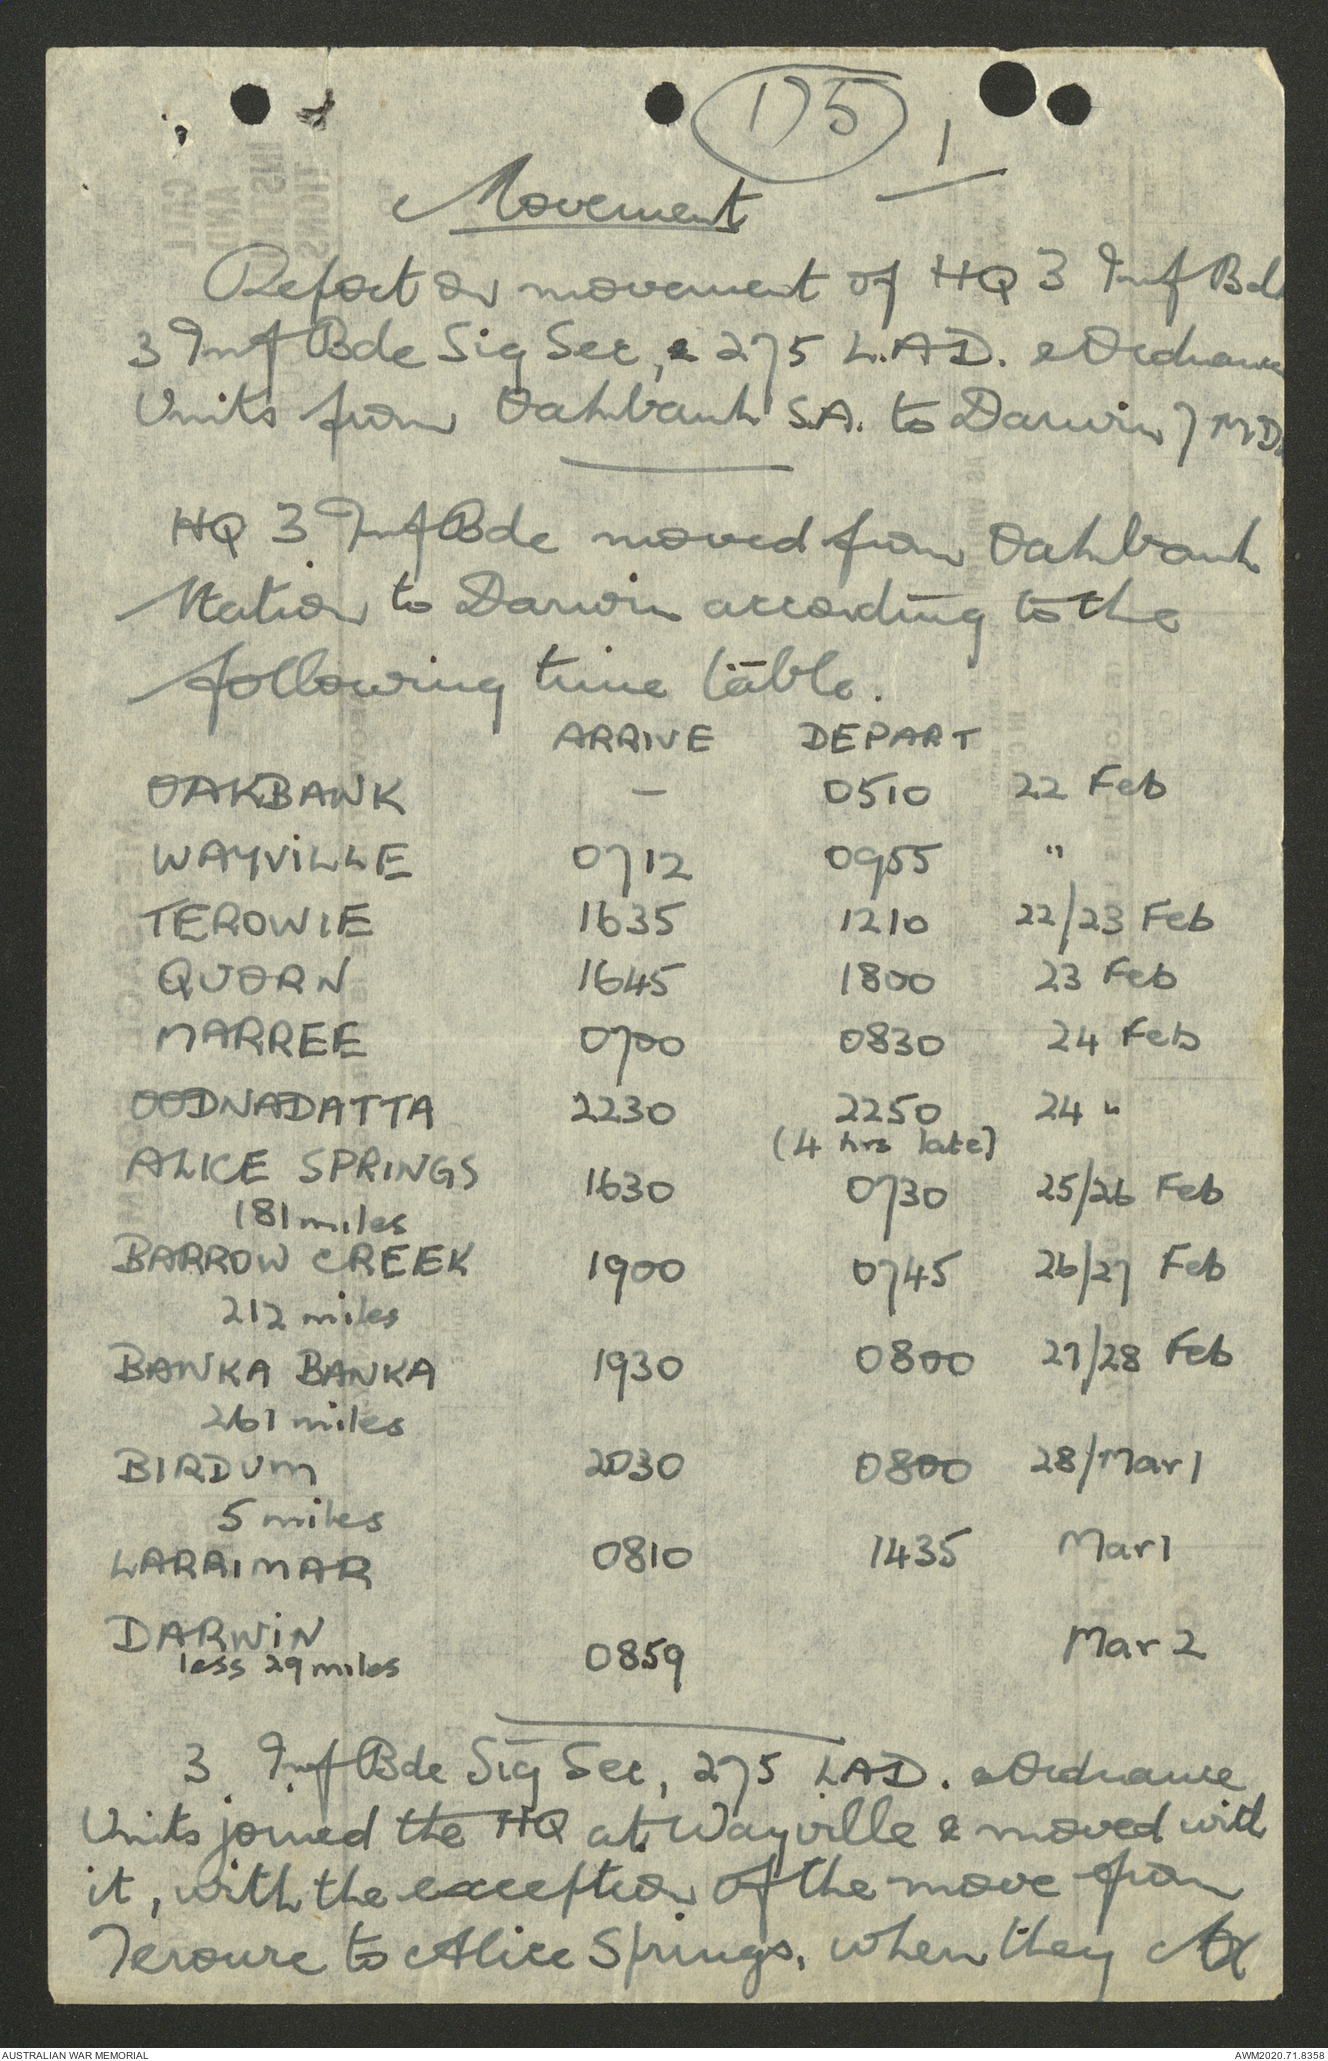 175
1
Movement
Report on movement of HQ 3 Inf Bde
3 Inf Bde Sig Sec, & 275 L.A.D. & Ordnance
Units from Oakbank S.A. to Darwin 7 M.D.
HQ 3 Inf Bde moved from Oakbank
Station to Darwin according to the
following time table.
ARRIVE DEPART
OAKBANK — 0510 22 Feb
WAYVILLE 0712 0955 "
TEROWIE 1635 1210 22/23 Feb
QUORN 1645 1800 23 Feb
MARREE 0700 0830 24 Feb
OODNADATTA 2230 2250 24 "
(4 hrs late)
ALICE SPRINGS 1630 0730 25/26 Feb
181 miles
BARROW CREEK 1900 0745 26/27 Feb
212 miles
BANKA BANKA 1930 0800 27/28 Feb
261 miles
BIRDUM 2030 0800 28/Mar 1
5 miles
LARRIMAR 0810 1435 Mar 1
DARWIN 0859 Mar 2
less 29 miles
3 Inf Bde Sig Sec, 275 LAD. & Ordnance
Units joined the HQ at Wayville & moved with
it, with the exception of the move from
Terowie to Alice Springs, when they
AUSTRALIAN WAR MEMORIAL AWM2020.71.8358